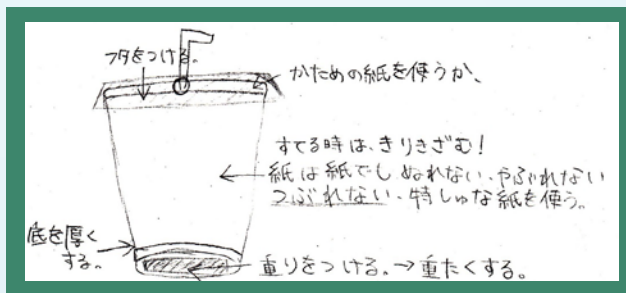 フタをつける。
かための紙を使うか、
すてる時は、きりきざむ!
紙は紙でも ぬれない、やぶれない
つぶれない、特しゅな紙を使う。
底を厚く
する。
重りをつける。→重たくする。